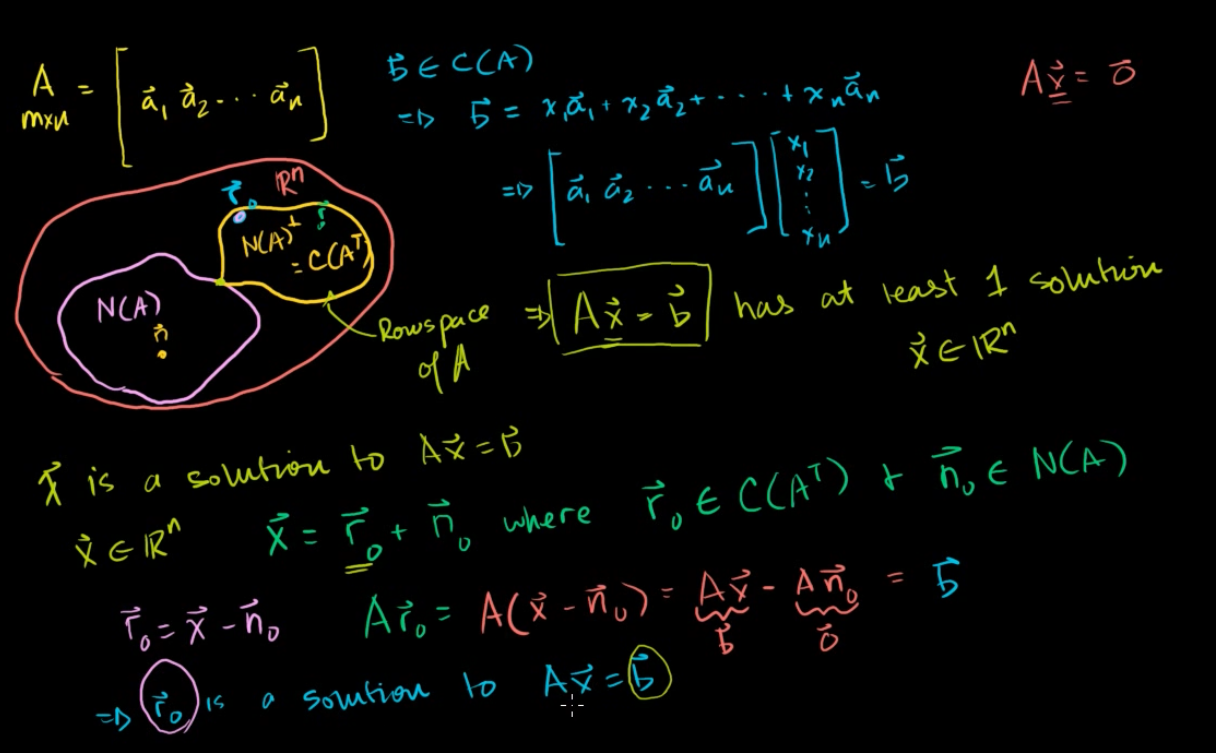 A = [ a⃗₁ a⃗₂ ... a⃗ₙ ]
mxn
b⃗ ∈ C(A)
=> b⃗ = x₁a⃗₁ + x₂a⃗₂ + ..... + xₙa⃗ₙ
Ax⃗ = 0⃗
=> [ a⃗₁ a⃗₂ ... a⃗ₙ ] [ x₁ x₂ ⋮ xₙ ] = b⃗
r⃗₀
ℝⁿ
r⃗
N(A)^⊥
= C(Aᵀ)
N(A)
n⃗
Rowspace
of A
=> Ax⃗ = b⃗ has at least 1 solution
x⃗ ∈ ℝⁿ
x⃗ is a solution to Ax⃗ = b⃗
x⃗ ∈ ℝⁿ
x⃗ = r⃗₀ + n⃗₀ where r⃗₀ ∈ C(Aᵀ) + n⃗₀ ∈ N(A)
r⃗₀ = x⃗ - n⃗₀
Ar⃗₀ = A(x⃗ - n⃗₀) = Ax⃗ - An⃗₀ = b⃗
b⃗ 0⃗
=> r⃗₀ is a solution to Ax⃗ = b⃗